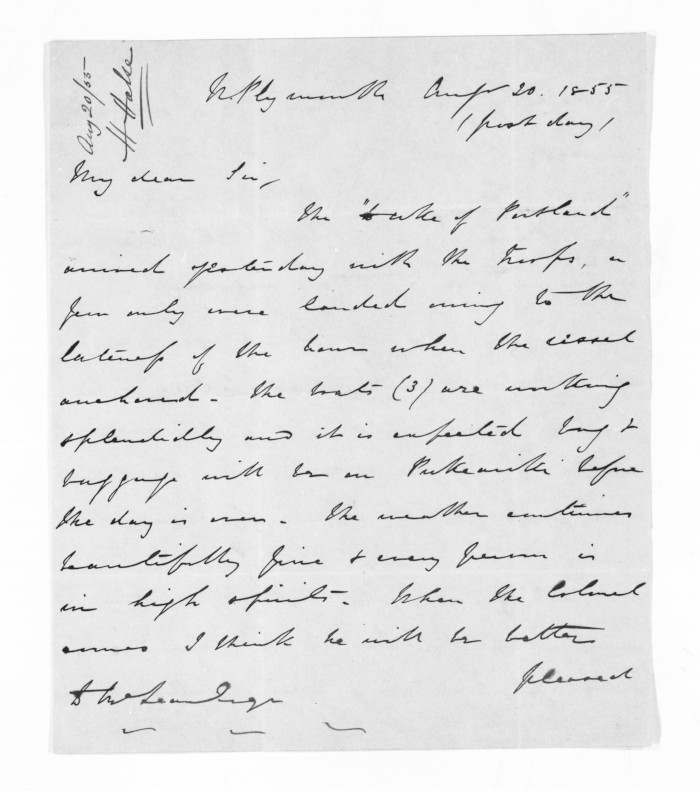 Aug 20/55
H Halse
N. Plymouth Augst 20. 1855
(post day)
My dear Sir,
The "Duke of Portland"
arrived yesterday with the troops, a
few only were landed owing to the
lateness of the hour when the vessel
anchored - The boats (3) are working
splendidly and it is expected bag &
baggage will be on Pukeariki before
the day is over - The weather continues
beautifully fine & every person is
in high spirits - When the Colonel
comes I think he will be better
pleased
D McLean Esqr